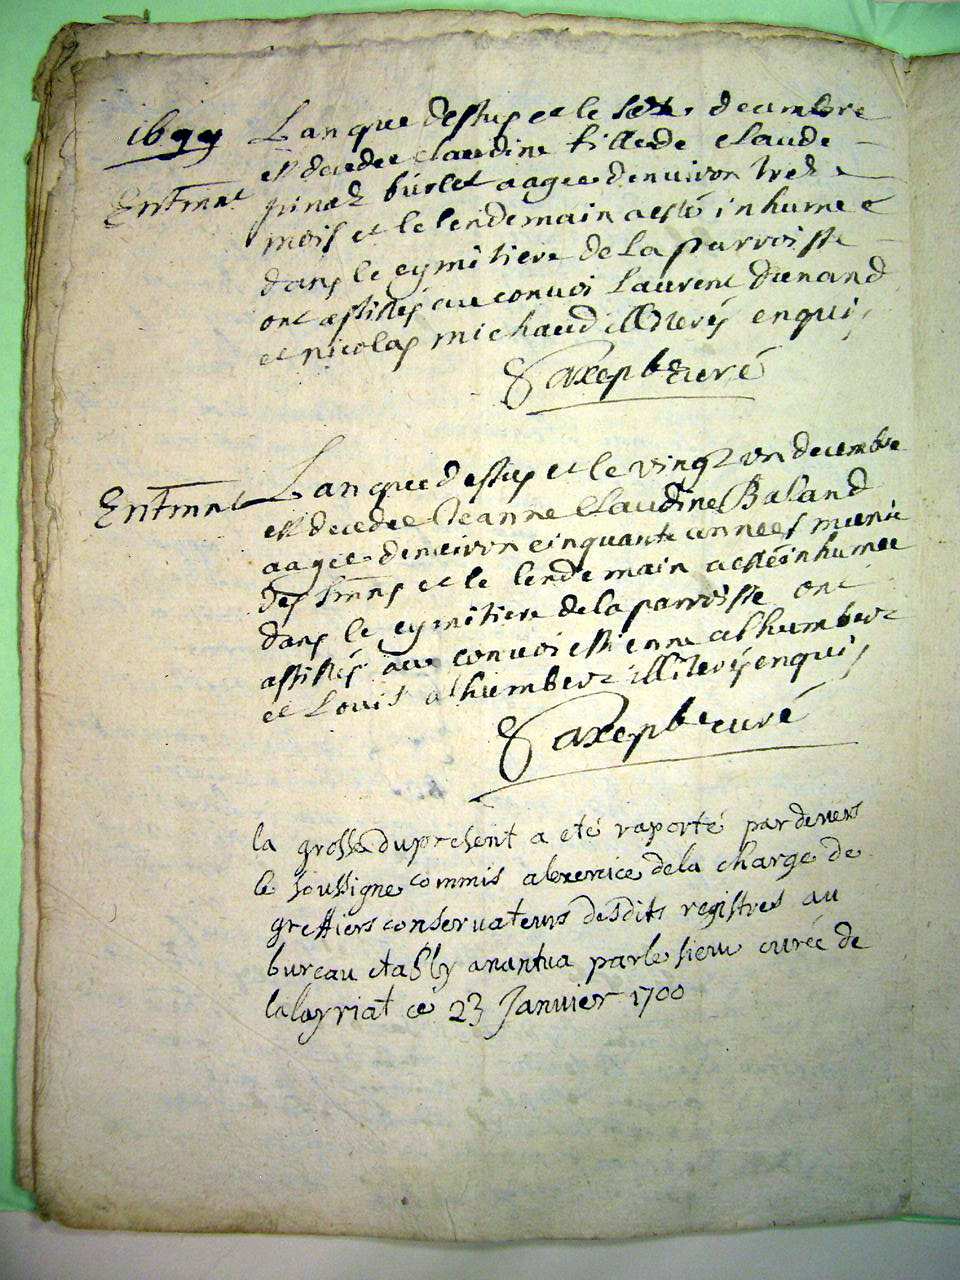 1699
Lan que dessus et le decembre
est decedee claudine fille de claude
pinaz burlet aagee denuiron treze
mois et le lendemain a esté inhumee
dans le cymitiere de la parroisse
ont assistés au conuoi Laurent Dunand
et nicolas michaud illiterés enquis
Entmnt
Saxepbe curé
Entmnt
Lan que dessus et le vingt un decembre
est decedee Jeanne Claudine Baland
aagee denuiron cinquante annees munie
des Smns et le lendemain a esté inhumee
dans le cymitiere de la parroisse ont
assistés au conuoi estienne alhumbert
et Louis alhumbert illiterés enquis
Saxepbe curé
la grosse du present a eté raporté par deuers
le soussigne commis a lexercice de la charge de
greffiers conseruateurs desdits registres au
bureau etably a nantua par le sieur curée de
lalayriat ce 23 Januier 1700